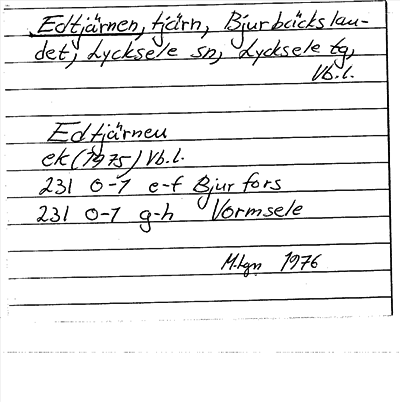 Edtjärnen, tjärn, Bjurbäckslau-
det, Lycksele sn, Lycksele tg,
Vb.l.
Edtjärneu
ek (1975) Vb.l.
231 0-1 e-f Bjurfors
231 0-1 g-h Vormsele
1976